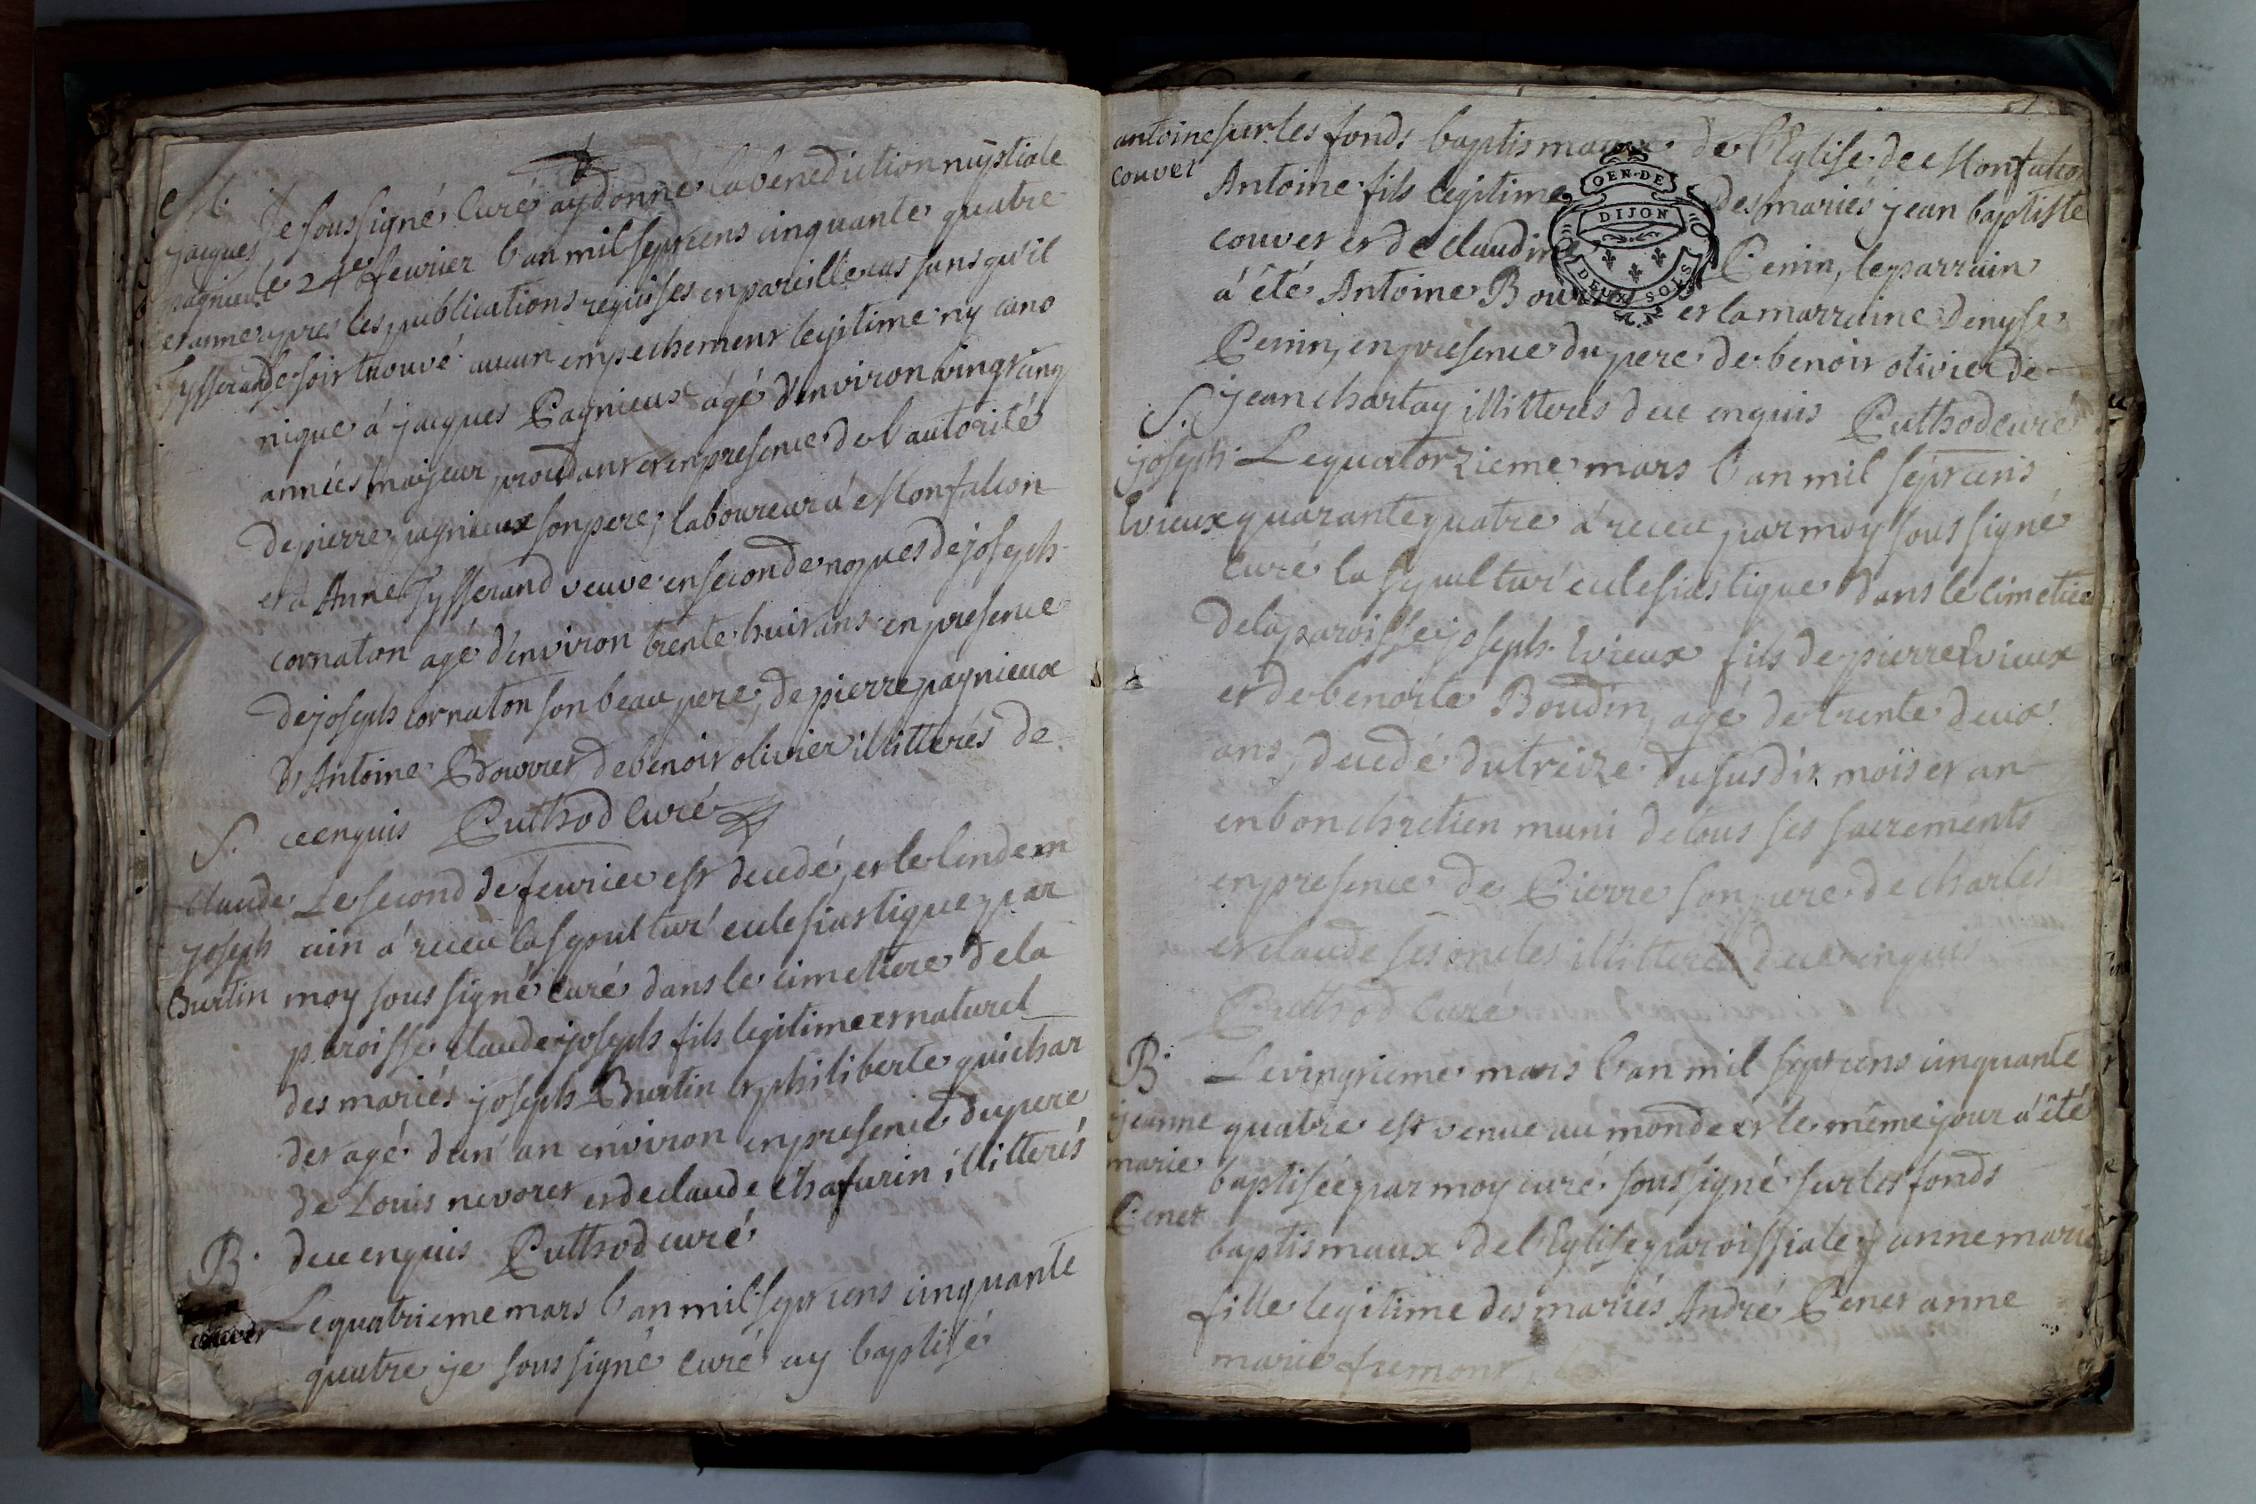 M.
jacques
pagnieux
et anne
Tysserand
Je soussigné Curé ay donné la benediction nuptiale
le 24e fevrier l'an mil sept cens cinquante quatre
apres les publications requises en pareille cas sans qu'il
se soit trouvé aucun empechement legitime ny cano
nique á jacques Pagnieux agé d'environ vingt cinq
années majeur, procedant et en presence de l'autorité
de pierre pagnieux son pere, laboureur á Monfalcon
et á Anne Tysserand veuve en seconde nopces de joseph
cornaton agé d'environ trente huit ans en presence
de joseph cornaton son beau pere, de pierre pagnieux
d'Antoine Bouvier de benoit olivier illitterés de
ce enquis Puthod Curé
S.
claude
joseph
Burtin
Le second de fevrier est decedé, et le lendem
ain á receu la sepultur' eclesiastique par
moy soussigné curé dans le cimetiere de la
paroisse claude joseph fils legitime et naturel
des mariés joseph Burtin et philiberte guichar
det agé d'un an environ en presence du pere
de Louis nevoret et de claude Chafurin illitterés
de ce enquis Puthod curé
B.
couvet
Le quatrieme mars l'an mil sept cens cinquante
quatre je soussigné curé ay baptisé
antoine
couvet
sur les fonds baptismaux de l'Eglise de Monfalcon
Antoine fils legitime des mariés jean baptiste
couvet et de claudine Penin, le parrain
á été Antoine Bouvier et la marraine Denyse
Penin, en presence du pere de benoit olivier de
jean chartay illitterés de ce enquis Puthod curé
S.
joseph
Vvieux
Le quatorzieme mars l'an mil sept cens
quarante quatre á receu par moy soussigné
Curé la sepultur' eclesiastique dans le cimetiere
de la paroisse joseph Vvieux fils de pierre Vvieux
et de benoite Boudin, agé de trente deux
ans, decedé du treize du susdit mois et an
en bon chretien muni de tous ses sacrements
en presence de Pierre son pere de charles
et claude ses oncles illitterés de ce enquis
Puthod Curé
B.
jeanne
marie
Penet
Le vingtieme mars l'an mil sept cens cinquante
quatre est venue au monde et le même jour a été
baptisée par moy curé soussigné sur les fonds
baptismaux de l'Eglise paroissiale janne marie
fille legitime des mariés André Penet anne
marie fremont
GEN. DE
DIJON
DEUX SOLS